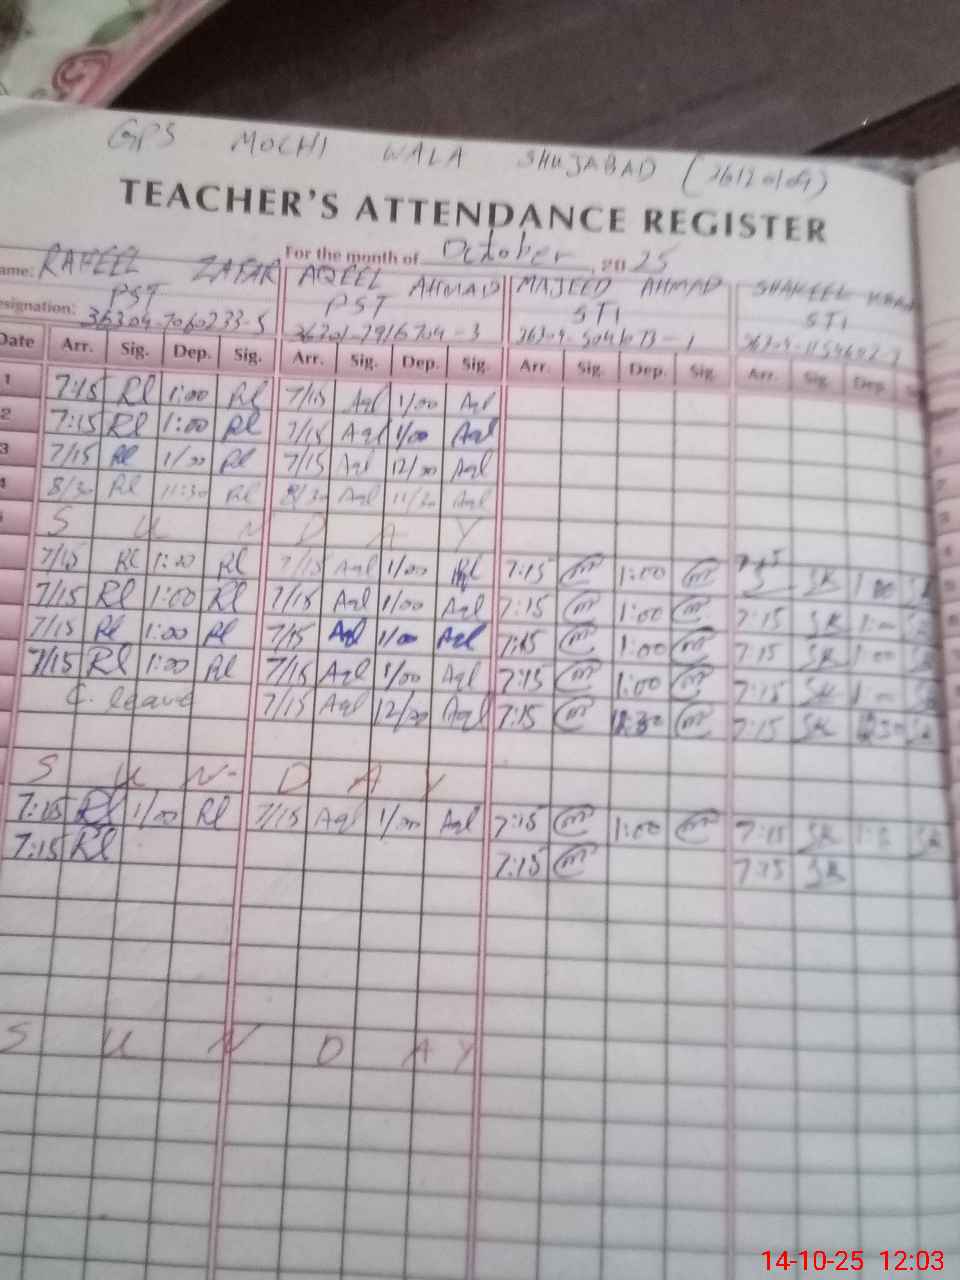 GPS MOCHI WALA SHUJABAD
TEACHER'S ATTENDANCE REGISTER
For the month of October, 2025
ame: RAHEEL ZAFAR AQEEL AHMAD MAJEED AHMAD SHAKEEL
esignation: PST PST STI STI
Date Arr. Sig. Dep. Sig. Arr. Sig. Dep. Sig. Arr. Sig. Dep. Sig. Arr. Sig. Dep.
1 7:15 Rl 1:00 Rl 7/15 Aql 1/00 Aql
2 7:15 Rl 1:00 Rl 7/15 Aql 1/00 Aql
3 7/15 Rl 1/00 Rl 7/15 Aql 12/00 Aql
4 8/30 Rl 11:30 Rl 8/30 Aql 11/30 Aql
S U N D A Y
7/15 Rl 1:00 Rl 7/15 Aql 1/00 7:15 m 1:00 m SK 1 00 SK
7/15 Rl 1:00 Rl 7/15 Aql 1/00 Aql 7:15 m 1:00 m 7:15 SK 1:00 SK
7/15 Rl 1:00 Rl 7/15 Aql 1/00 Aql 7:15 m 1:00 m 7:15 SK 1:00 SK
7/15 Rl 1:00 Rl 7/15 Aql 1/00 Aql 7:15 m 1:00 m 7:15 SK SK
C. leave 7/15 Aql 12/00 Aql 7:15 m 12:30 m 7:15 SK SK
S U N D A Y
7:15 Rl 1/00 Rl 7/15 Aql 1/00 Aql 7:15 m 1:00 m 7:15 SK SK
7:15 Rl 7:15 m 7:15 SK
S U N D A Y
14-10-25 12:03